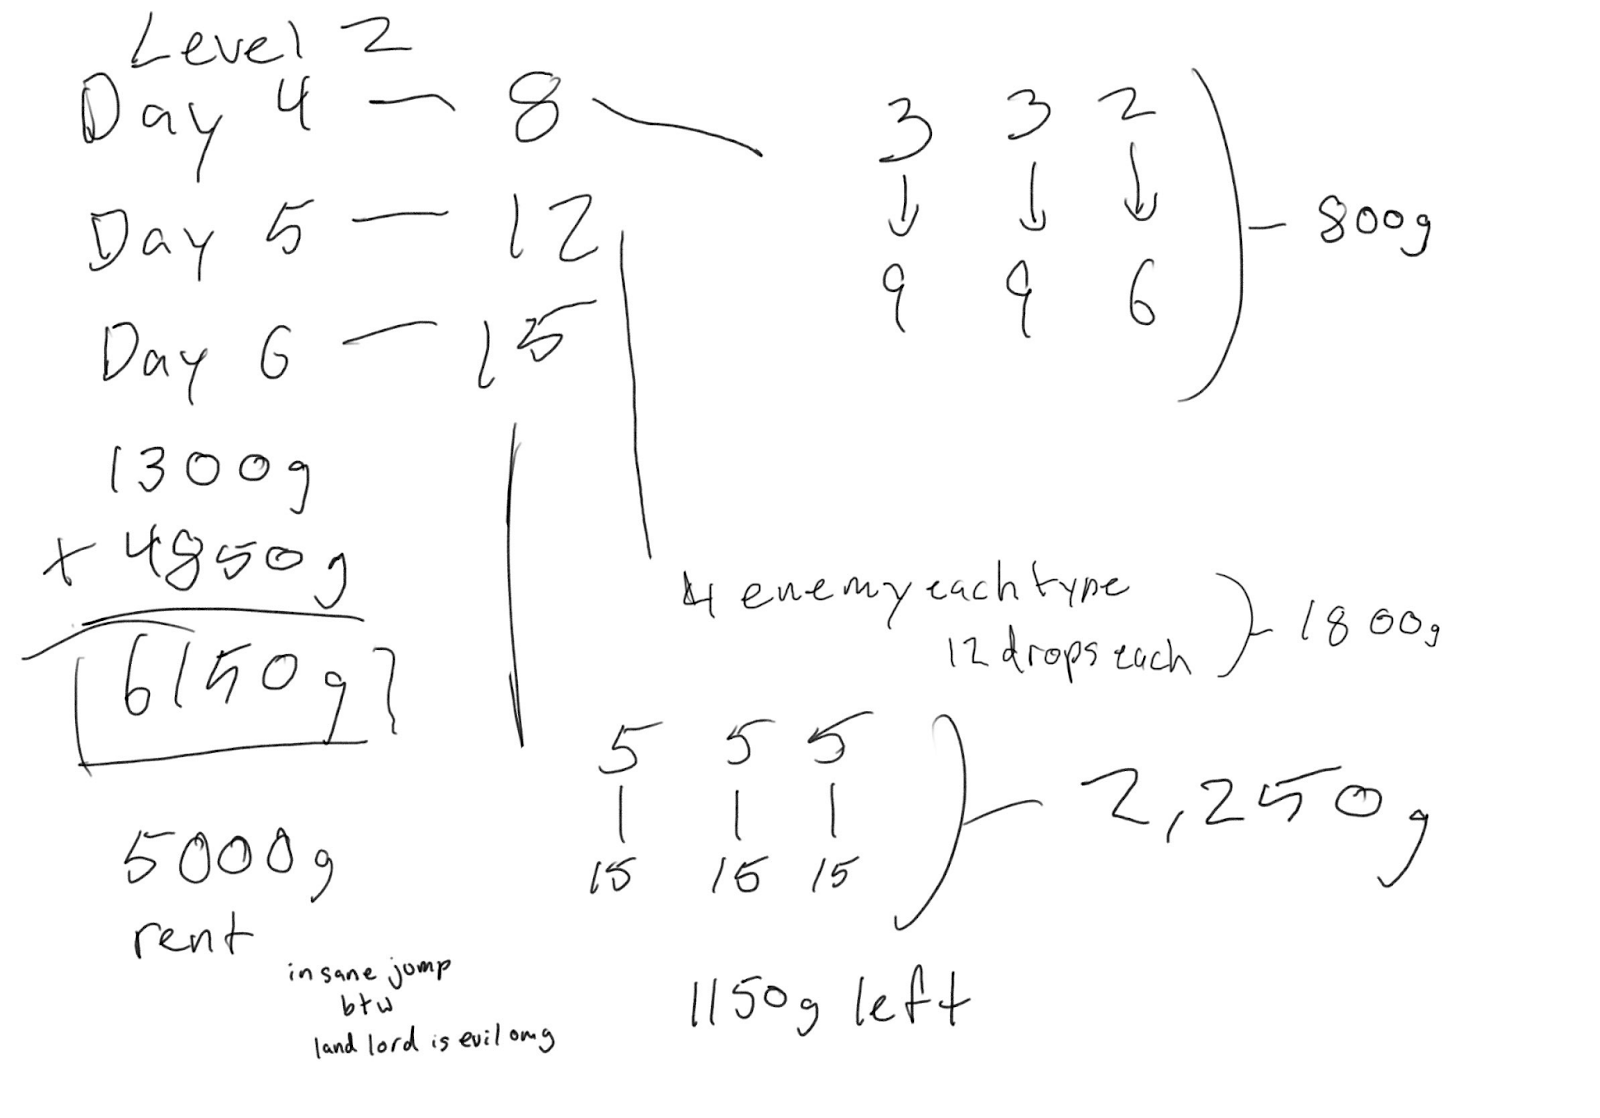 Level 2
Day 4 — 8
Day 5 — 12
Day 6 — 15
3 3 2
↓ ↓ ↓
9 9 6
- 800g
1300g
+ 4850g
6150g
4 enemy each type
12 drops each
- 1800g
5 5 5
| | |
15 15 15
- 2,250g
5000g
rent
insane jump
btw
land lord is evil omg
1150g left